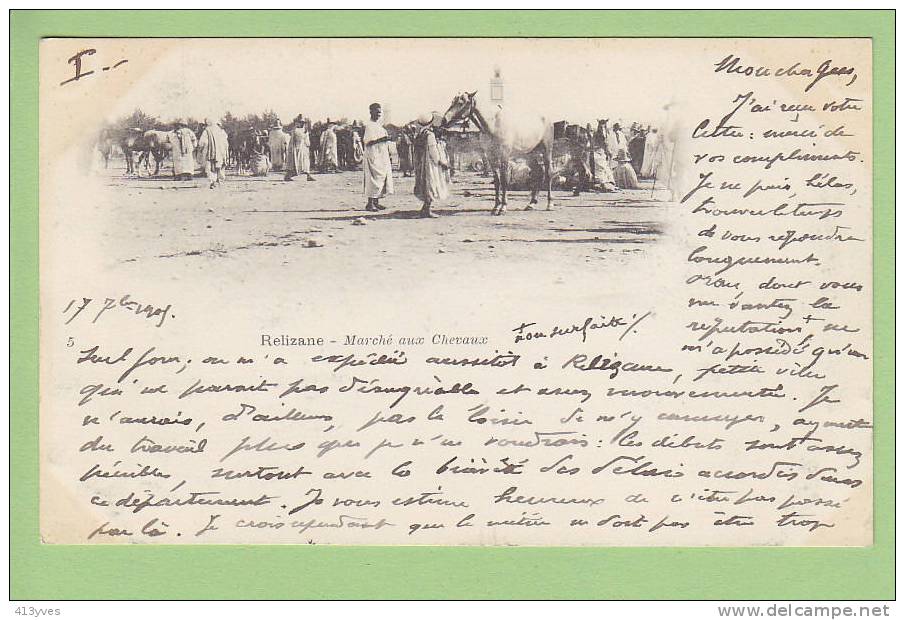 I.-
Mon cher Yves,
J'ai reçu votre
lettre : merci de
vos compliments.
Je ne puis, hélas,
trouver le temps
de vous répondre
longuement.
Oran, dont vous
me vantez la
réputation + ne
m'a possédé qu'un
17 7bre 1905.
+ non surfaite !
5 Relizane - Marché aux Chevaux
seul jour ; on m'a expédié aussitôt à Relizane, petite ville
qui ne parait pas désagréable et assez mouvementée. Je
n'aurais, d'ailleurs, pas le loisir de m'y ennuyer, ayant
du travail plus que je n'en voudrais : les débuts sont assez
pénibles, surtout avec la brièveté des délais accordés dans
ce département. Je vous estime heureux de n'être pas passé
par là. Je crois cependant que le métier ne doit pas être trop
413yves
www.delcampe.net